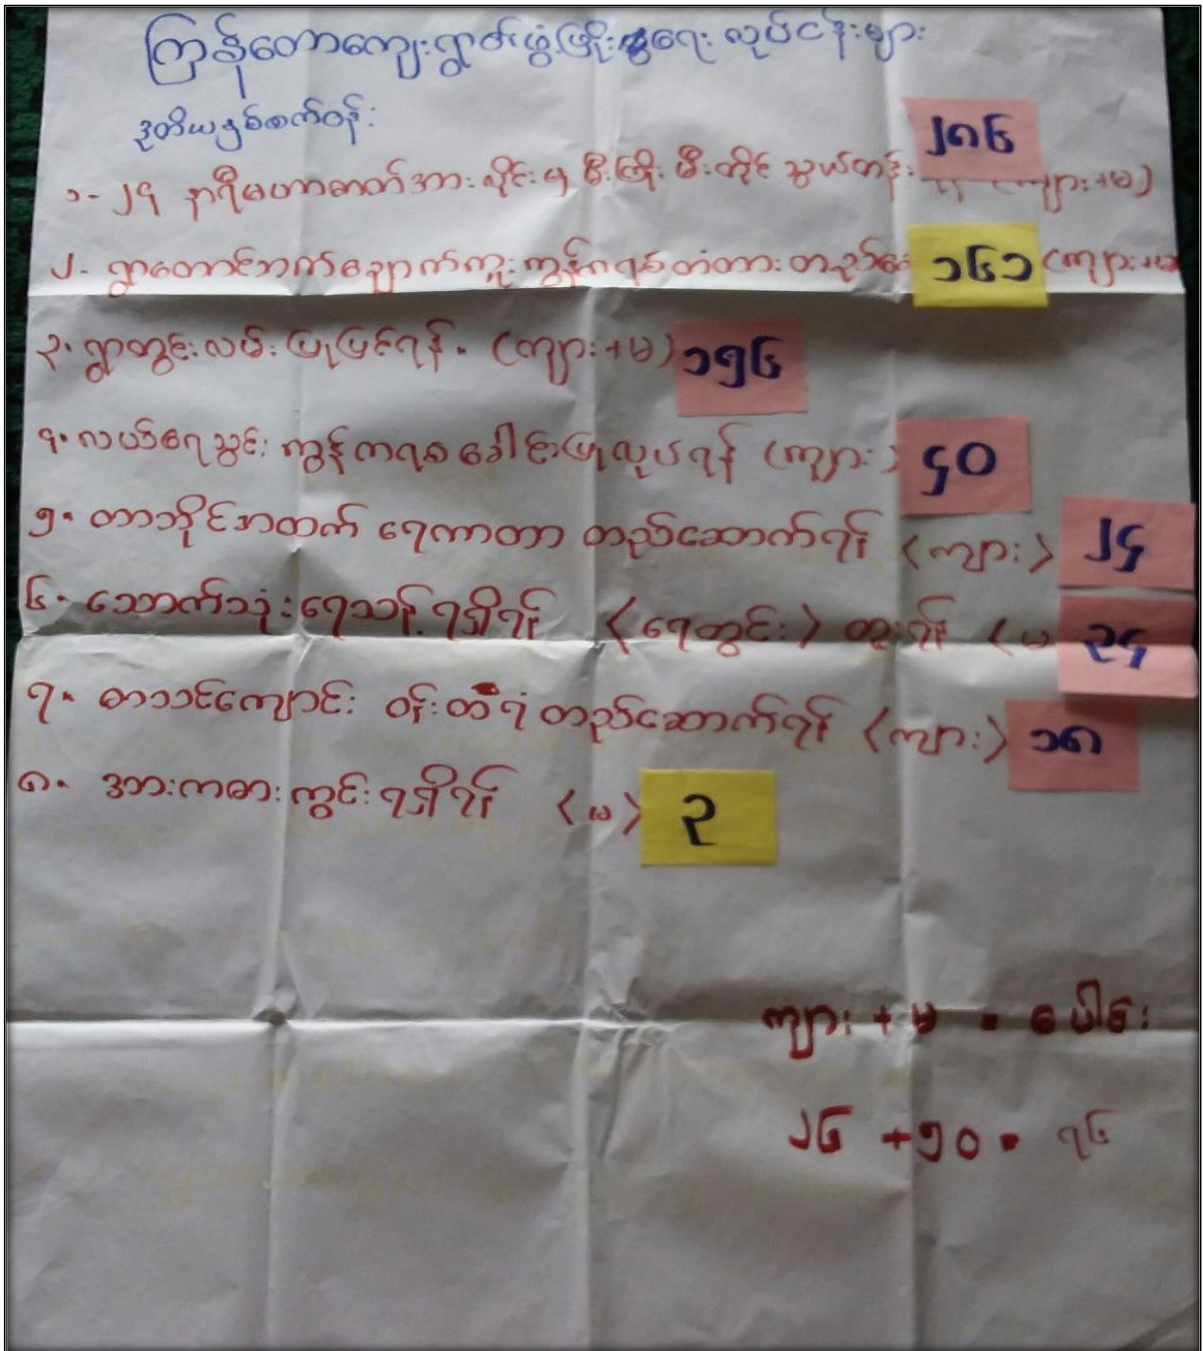 ကြန်တောကျေးရွာဖွံ့ဖြိုးရေး လုပ်ငန်းများ
ဒုတိယနှစ်စက်ဝန်း
၁- ၂၄ နာရီမဟာဓာတ်အားလိုင်းမှ မီးကြိုး မီးတိုင် သွယ်တန်းရန် (ကျား+မ) ၂၈၆
၂- ရွာတောင်ဘက်ချောက်ကူးကွန်ကရစ်တံတားတည်ဆောက် ၁၆၁ (ကျား+မ
၃. ရွာတွင်းလမ်းပြုပြင်ရန်. (ကျား+မ) ၁၅၆
၄. လယ်ရေသွင်း ကွန်ကရစ်ခေါင်းပြုလုပ်ရန် (ကျား) ၄၀
၅. တာဘိုင်အထက် ရေကာတာ တည်ဆောက်ရန် (ကျား) ၂၄
၆. သောက်သုံးရေသန့်ရရှိရန် (ရေတွင်း) တူးရန် (မ ၃၄
၇. စာသင်ကျောင်း ဝန်းတံရံ တည်ဆောက်ရန် (ကျား) ၁၈
၈. အားကစားကွင်းရရှိရန် (မ) ၃
ကျား + မ = ပေါင်း
၂၆ + ၅၀ = ၇၆